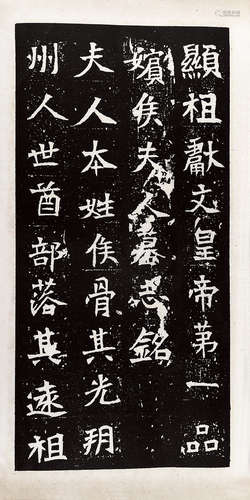 顯祖獻文皇帝第一品
嬪侯夫人墓志銘
夫人本姓侯骨其先朔
州人世酋部落其遠祖